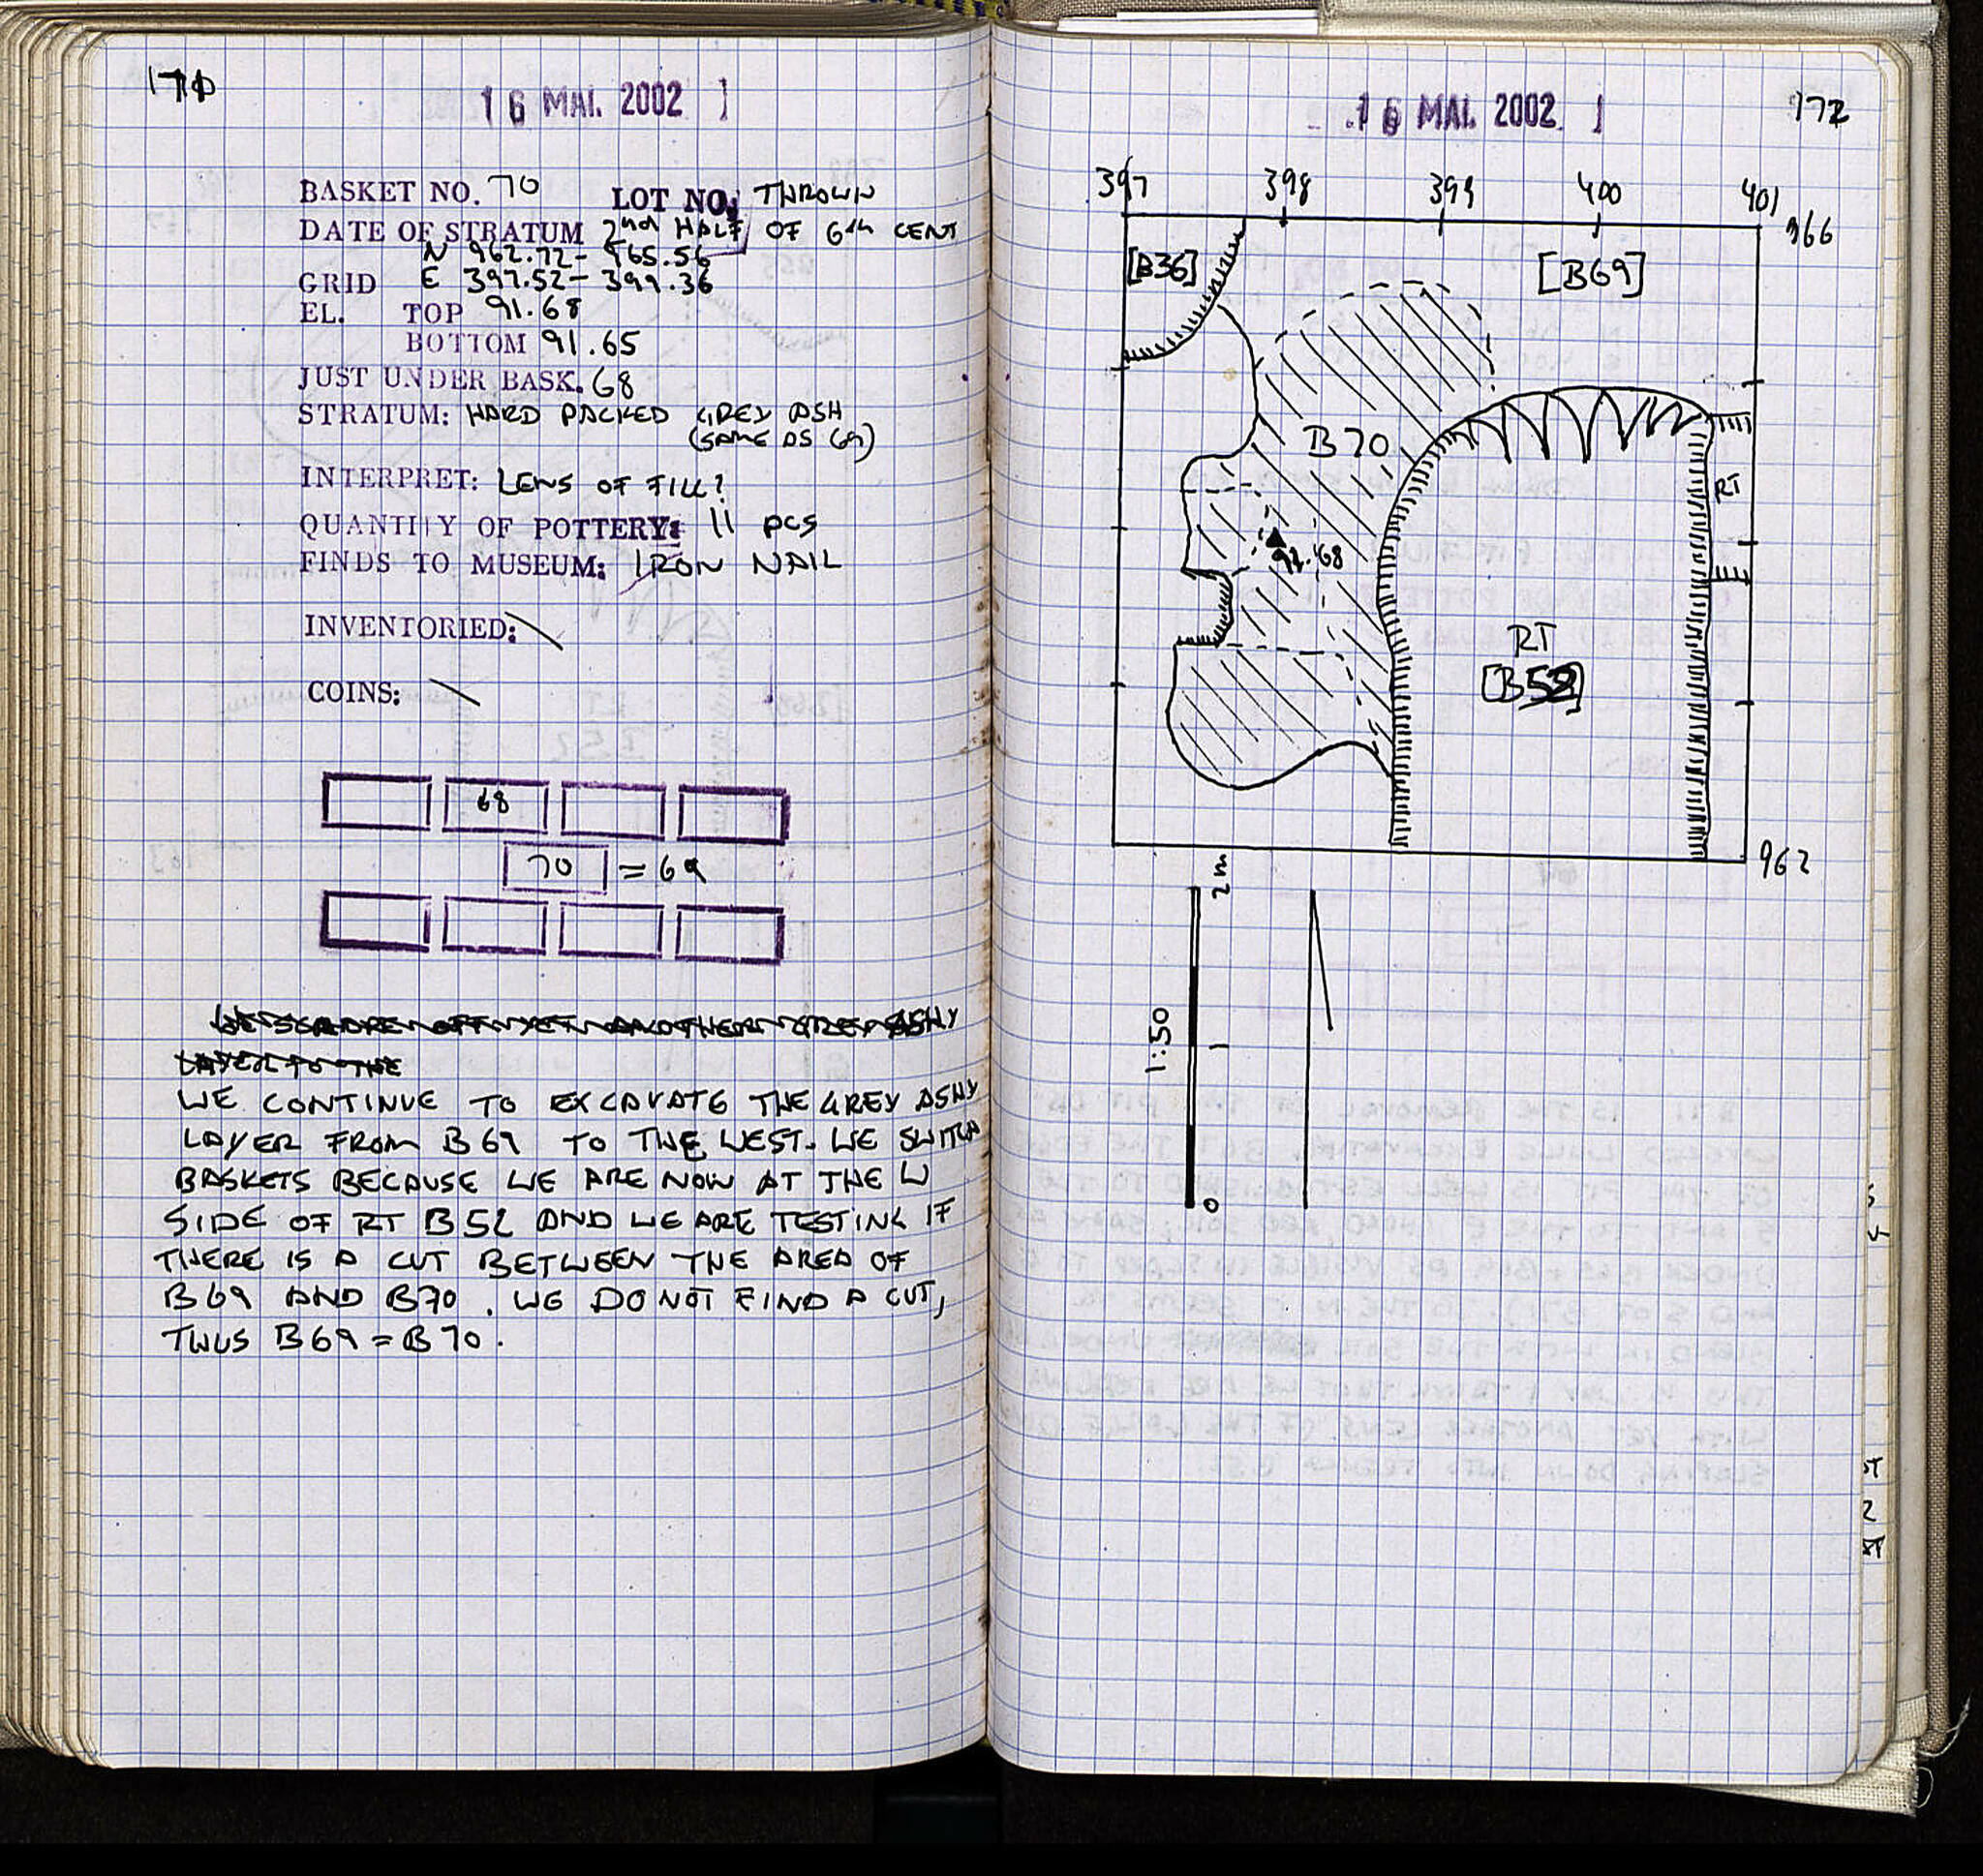 171
16 MAI. 2002 1
BASKET NO. 70 LOT NO: THROWN
DATE OF STRATUM 2nd HALF OF 6th CENT
N 962.72 - 965.56
GRID E 397.52 - 399.36
EL. TOP 91.68
BOTTOM 91.65
JUST UNDER BASK. 68
STRATUM: HARD PACKED GREY ASH
(SAME AS 69)
INTERPRET: LENS OF FILL?
QUANTITY OF POTTERY: 11 pcs
FINDS TO MUSEUM: IRON NAIL
INVENTORIED: \
COINS: \
68
70 = 69
WE SCRAPE OFF YET ANOTHER GREY ASHY
LAYER TO THE
WE CONTINUE TO EXCAVATE THE GREY ASHY
LAYER FROM B69 TO THE WEST. WE SWITCH
BASKETS BECAUSE WE ARE NOW AT THE W
SIDE OF RT B52 AND WE ARE TESTING IF
THERE IS A CUT BETWEEN THE AREA OF
B69 AND B70. WE DO NOT FIND A CUT,
THUS B69 = B70.
16 MAI. 2002 1
172
397 398 399 400 401
966
[B36]
[B69]
B70
RT
91.68
RT
[B52]
962
2m
1:50
0